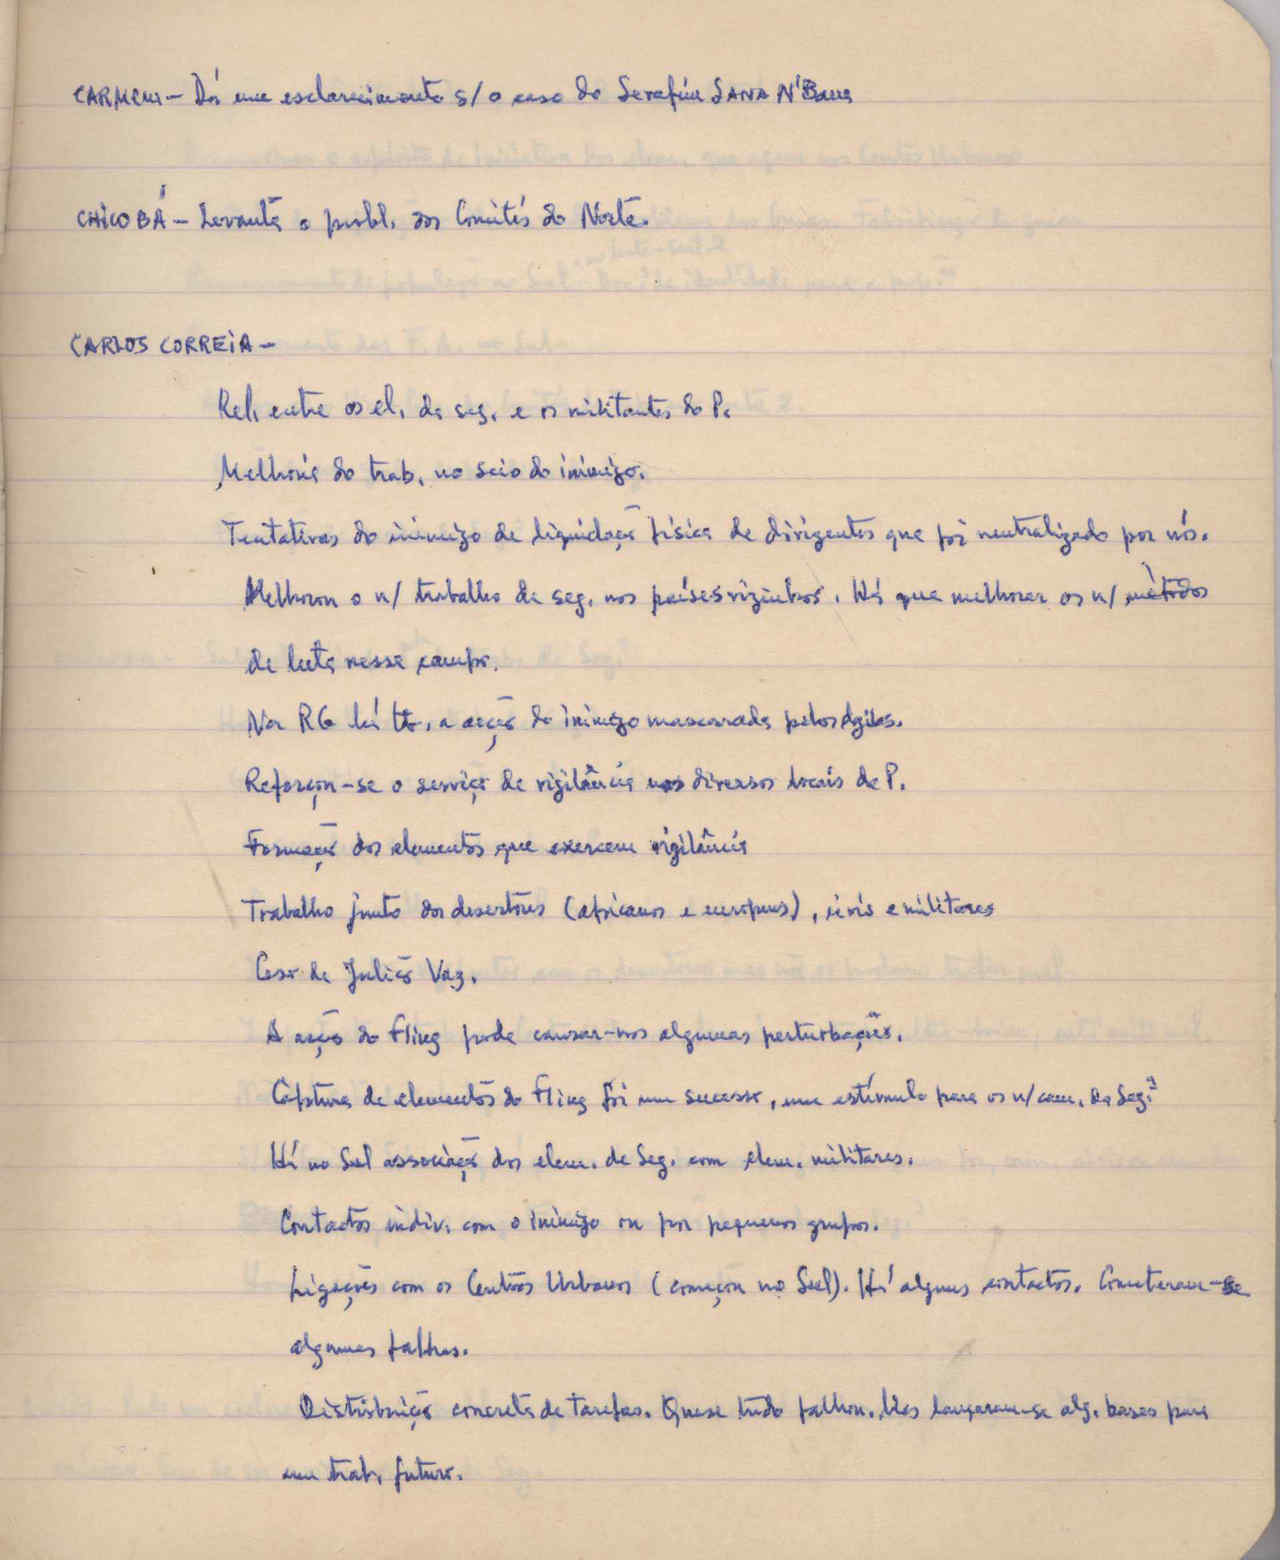 CARMEM - Dá um esclarecimento s/ o caso do Serafim SANA N'
CHICO BÁ - Levanta o probl. dos Comités do Norte.
CARLOS CORREIA -
Rel. entre os el. da seg. e os militantes do P.
Melhoria do trab. no seio do inimigo.
Tentativas do inimigo de liquidação física de dirigentes que foi neutralizado por nós.
Melhorou o n/ trabalho de seg. nos países vizinhos. Há que melhorar os n/ métodos
de luta nesse campo.
Na RG há tb. a acção do inimigo mascarada pelos
Reforçou-se o serviço de vigilância nos diversos locais do P.
Formação dos elementos que exercem vigilância
Trabalho junto dos desertores (africanos e europeus), civis e militares
Caso de Julião Vaz.
A acção do Fling pode causar-nos algumas perturbações.
Captura de elementos do Fling foi um sucesso, um estímulo para os n/ cam. da Seg.ª
Há no Sul associação dos elem. de Seg. com elem. militares.
Contactos indiv. com o inimigo ou por pequenos grupos.
Ligações com os Centros Urbanos (começou no Sul). Há alguns contactos. Cometeram-se
algumas falhas.
Distribuição concreta de tarefas. Quase tudo falhou. Mas lançaram-se alg. bases para
um trab. futuro.